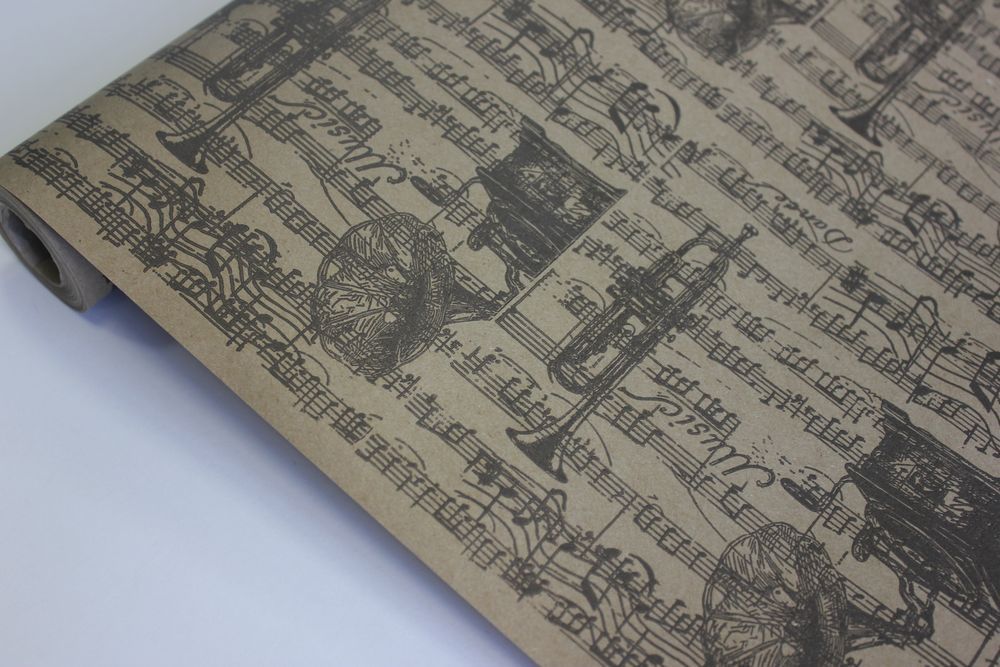 Music
Dance
Music